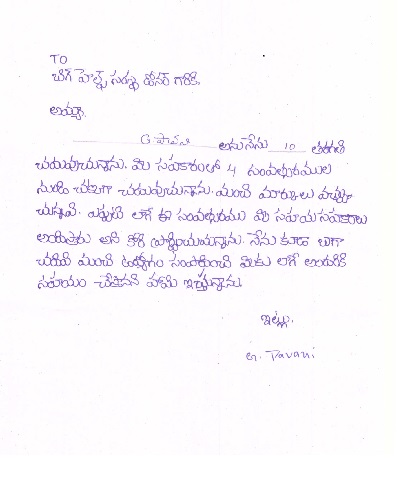 TO
బిగ్ హెల్ప్ సంస్థ డోనర్ గారికి,
అయ్యా,
G పావని అను నేను 10 తరగతి
చదువుచున్నాను. మీ సహకారంతో 4 సంవత్సరముల
నుండి చక్కగా చదువుచున్నాను. మంచి మార్కులు వచ్చు
చున్నవి. ఎప్పటి లాగే ఈ సంవత్సరము మీ సహాయసహకారాలు
అందిస్తారు అని కోరి ప్రార్థించుచున్నాను. నేను కూడా బాగా
చదివి మంచి ఉద్యోగం సంపాదించి మీకు లాగే అందరికి
సహాయం చేస్తానని హామి ఇస్తున్నాను.
ఇట్లు,
G. Pavani